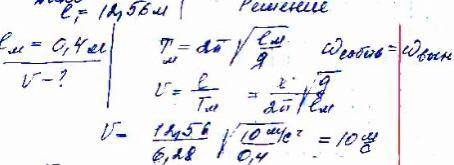 l = 12,56 м Решение
lм = 0,4 м Tм = 2π √(lм/g) ωсобств = ωвын
v - ? v = l/Tм = x/2π √(g/lм)
v = 12,56/6,28 √(10 м/с²/0,4) = 10 м/с